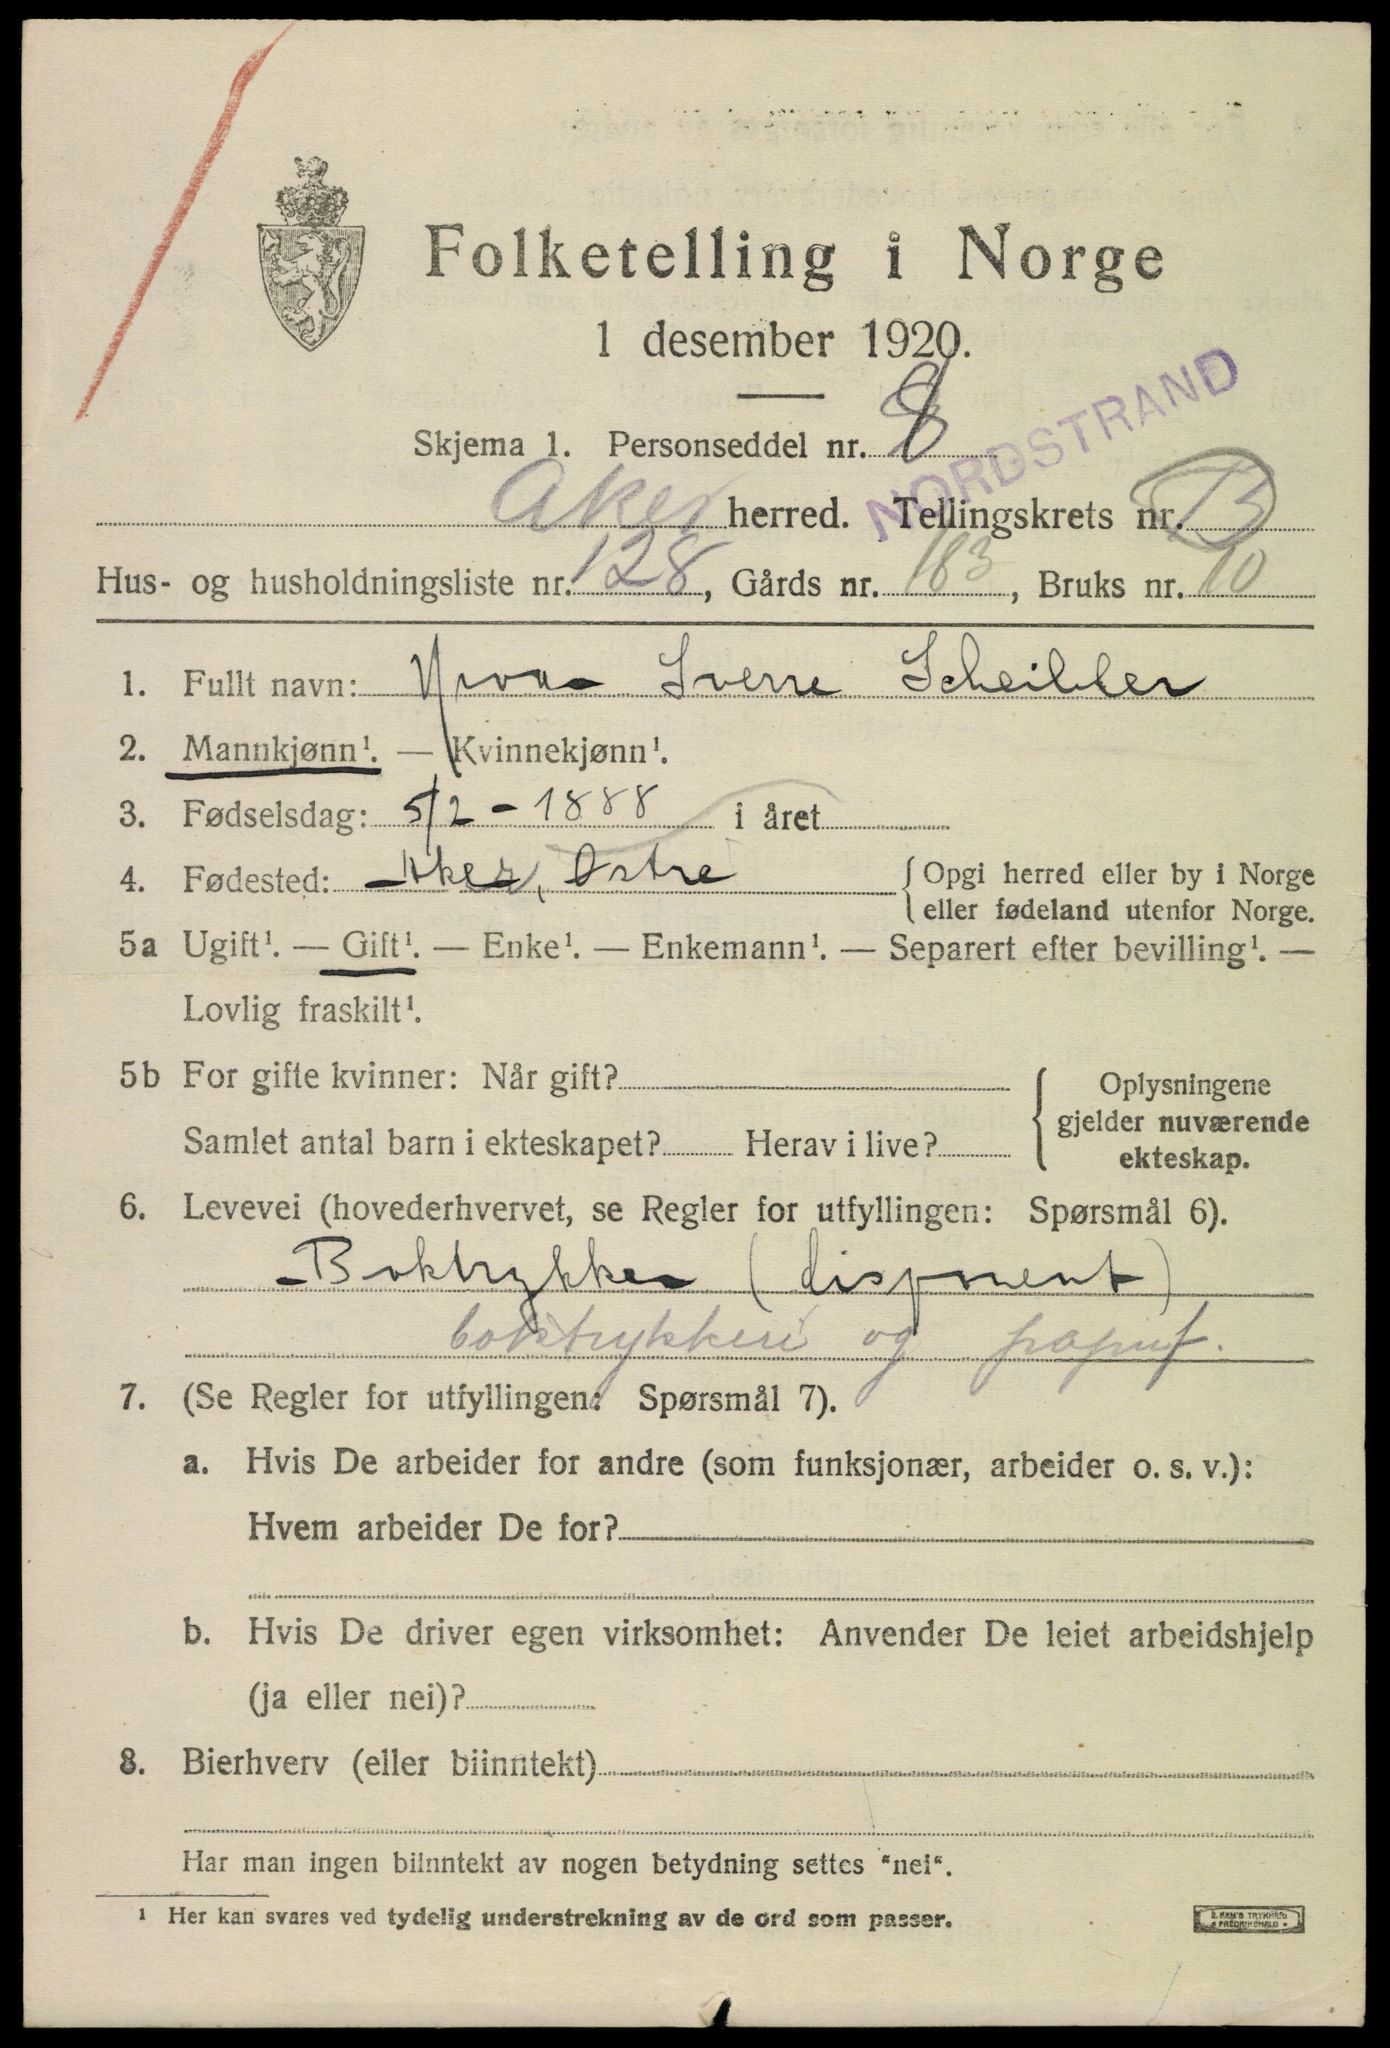 Folketelling i Norge
1 desember 1920.
NORDSTRAND
Skjema 1. Personseddel nr. 8
Aker herred. Tellingskrets nr. 13
Hus- og husholdningsliste nr. 128, Gårds nr. 183, Bruks nr. 10
1. Fullt navn: Sverre Scheibler
2. Mannkjønn¹. — Kvinnekjønn¹.
3. Fødselsdag: 5/2 - 1888 i året
4. Fødested: Aker, Østre { Opgi herred eller by i Norge
eller fødeland utenfor Norge.
5a Ugift¹. — Gift¹. — Enke¹. — Enkemann¹. — Separert efter bevilling¹. —
Lovlig fraskilt¹.
5b For gifte kvinner: Når gift?
Samlet antal barn i ekteskapet? Herav i live?
{ Oplysningene
gjelder nuværende
ekteskap.
6. Levevei (hovederhvervet, se Regler for utfyllingen: Spørsmål 6).
Boktrykker (disponent)
boktrykkeri og papirf.
7. (Se Regler for utfyllingen: Spørsmål 7).
a. Hvis De arbeider for andre (som funksjonær, arbeider o. s. v.):
Hvem arbeider De for?
b. Hvis De driver egen virksomhet: Anvender De leiet arbeidshjelp
(ja eller nei)?
8. Bierhverv (eller biinntekt)
Har man ingen biinntekt av nogen betydning settes "nei".
¹ Her kan svares ved tydelig understrekning av de ord som passer.
FREDRIKSHALD